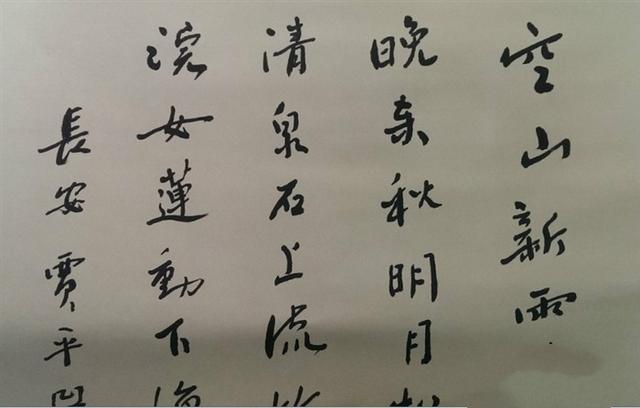 空山新雨
晚来秋明月松
清泉石上流
浣女蓮動下漁
長安賈平凹